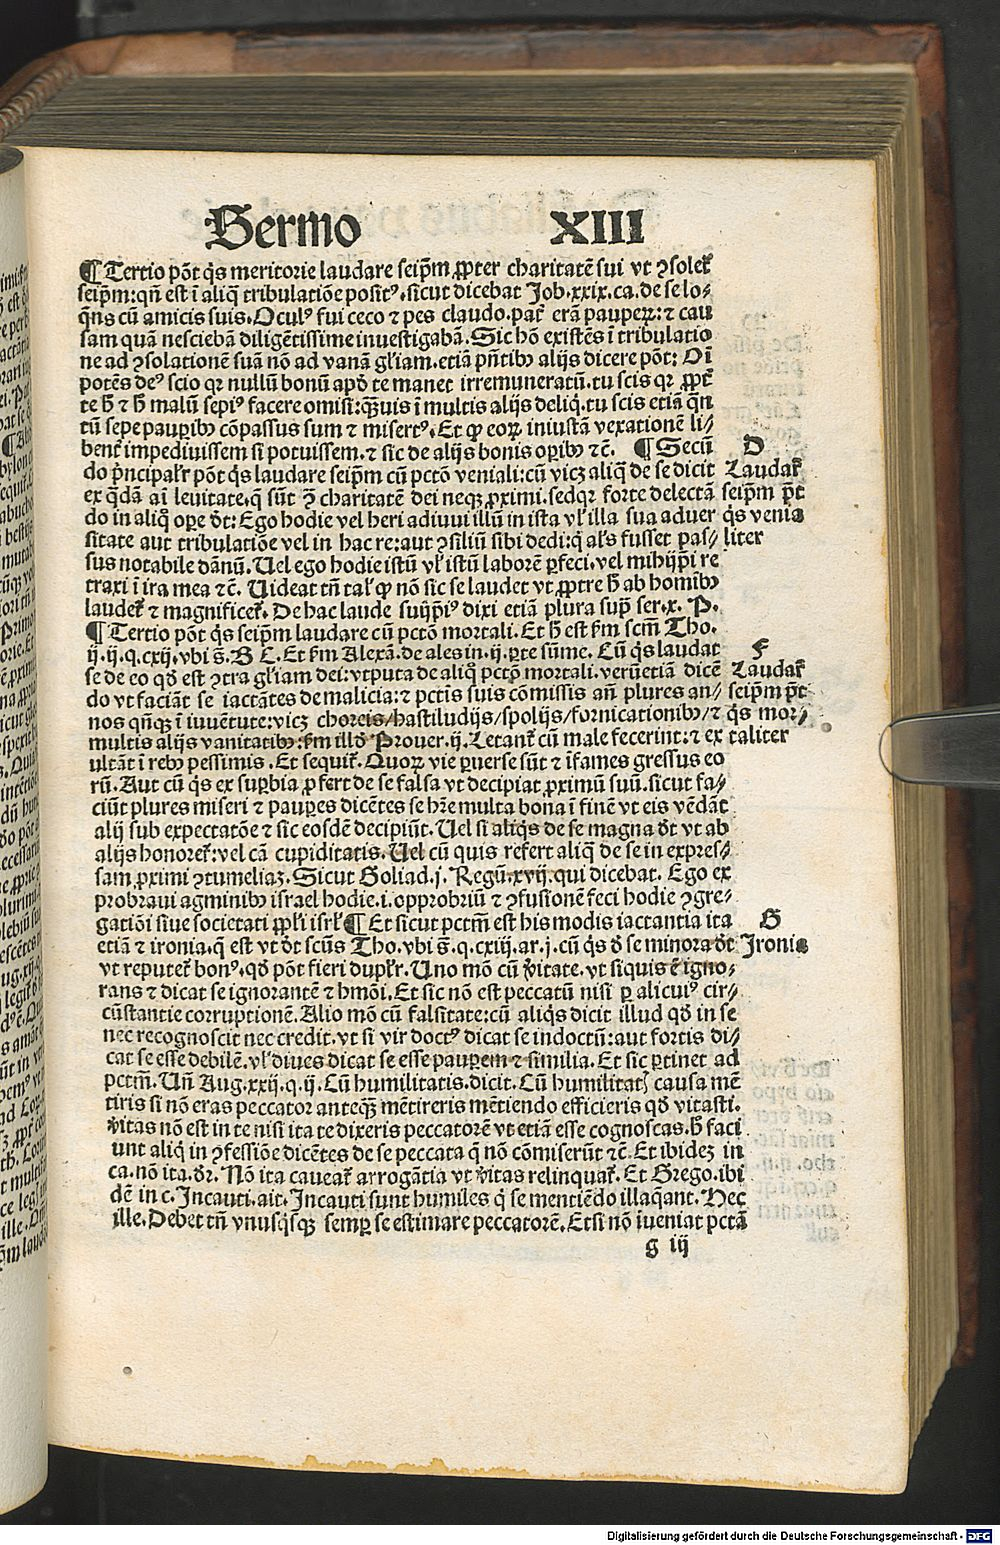 Sermo XIII
¶ Tertio põt q̃s meritorie laudare seip̃m ꝓpter charitatẽ sui vt ꝯsoleť
seip̃m: qñ est ĩ aliq̃ tribulatiõe positꝰ. sicut dicebat Job. xxix. ca. de se lo⸗
q̃ns cũ amicis suis. Oculꝰ fui ceco ⁊ pes claudo. pať erã pauperꝝ: ⁊ cau
sam quã nesciebã diligẽtissime inuestigabã. Sic hõ existẽs ĩ tribulatio
ne ad ꝯsolationẽ suã nõ ad vanã gl̃iam. etiã pñtibꝰ alijs dicere põt: Oĩ
potẽs deꝰ scio qꝛ nullũ bonũ apð te manet irremuneratũ. tu scis qꝛ ꝓpť
te h̃ ⁊ h̃ malũ sepiꝰ facere omisi: q̃uis ĩ multis alijs deliq̃. tu scis etiã q̃n
tũ sepe pauꝑibꝰ cõpassus sum ⁊ misertꝰ. Et ꝙ eoꝝ iniustã vexationẽ li⸗
benť impediuissem si potuissem. ⁊ sic de alijs bonis oꝑibꝰ ⁊c̃. ¶ Secũ
do p̃ncipal̃r põt q̃s laudare seip̃m cũ pctõ veniali: cũ vicꝫ aliq̃ de se dicit
ex q̃dã aĩ leuitate. q̃ sũt ꝯ̃ charitatẽ dei neqꝫ ꝓximi. sed qꝛ forte delectã
do in aliq̃ oꝑe d̃t: Ego hodie vel heri adiuui illũ in ista vl̃ illa sua aduer
sitate aut tribulatiõe vel in hac re: aut ꝯsiliũ sibi dedi: q̃ al̃s fuisset pas⸗
sus notabile dãnũ. Uel ego hodie istũ vl̃ istũ laborẽ ꝑfeci. vel mihijp̃i re
traxi ĩ ira mea ⁊c̃. Uideat tñ tal̃ ꝙ nõ sic se laudet vt ꝓptre h̃ ab homĩbꝰ
laudeť ⁊ magnificeť. De hac laude suijp̃iꝰ dixi etiã plura sup̃ ser. x. P.
¶ Tertio põt q̃s seip̃m laudare cũ pctõ mortali. Et h̃ est s̃m scm̃ Tho.
ij. ij. q. cxij. vbi s̃. B C. Et s̃m Alexã. de ales in. ij. ꝑte sũme. Cũ q̃s laudat
se de eo qð est ꝯtra gl̃iam dei: vtputa de aliq̃ pctõ mortali. verũetiã dicẽ
do vt faciãt se iactãtes de malicia: ⁊ pctĩs suis cõmissis añ plures an⸗
nos qñqꝫ ĩ iuuẽtute: vicꝫ choreis/ hastiludijs/ spolijs/ fornicationibꝰ/ ⁊
multis alijs vanitatibꝰ: s̃m illð Prouer. ij. Letanť cũ male fecerint: ⁊ ex
ultãt ĩ rebꝰ pessimis. Et sequiť. Quoꝝ vie ꝑuerse sũt ⁊ ĩfames gressus eo
rũ. Aut cũ q̃s ex suꝑbia ꝓfert de se falsa vt decipiat ꝓximũ suũ. sicut fa⸗
ciũt plures miseri ⁊ pauꝑes dicẽtes se hr̃e multa bona ĩ finẽ vt eis vẽdãt
alij sub expectatõe ⁊ sic eosdẽ decipiũt. Uel si aliq̃s de se magna d̃t vt ab
alijs honoreť: vel cã cupiditatis. Uel cũ quis refert aliq̃ de se in expres⸗
sam ꝓximi ꝯtumeliaꝫ. Sicut Goliad. j. Regũ. xvij. qui dicebat. Ego ex
probraui agminibꝰ israel hodie. i. opprobriũ ⁊ ꝯfusionẽ feci hodie ꝯgre⸗
gatiõi siue societati ppl̃i isrl̃ ¶ Et sicut pctm̃ est his modis iactantia ita
etiã ⁊ ironia. q̃ est vt d̃t scũs Tho. vbi s̃. q. cxiij. ar. j. cũ q̃s d̃ se minora d̃t
vt reputeť bonꝰ. qð põt fieri dupl̃r. Uno mõ cũ v̾itate. vt si quis ẽ igno⸗
rans ⁊ dicat se ignorantẽ ⁊ hmõi. Et sic nõ est peccatũ nisi ꝑ alicuiꝰ cir⸗
cũstantie corruptionẽ. Alio mõ cũ falsitate: cũ aliq̃s dicit illud qð in se
nec recognoscit nec credit. vt si vir doctꝰ dicat se indoctũ: aut fortis di⸗
cat se esse debilẽ. vl̃ diues dicat se esse pauperem ⁊ similia. Et sic ꝑtinet ad
pctm̃. Uñ Aug. xxij. q. ij. Cũ humilitatis. dicit. Cũ humilitatꝭ causa mẽ
tiris si nõ eras peccator anteq̃ꝫ mẽtireris mẽtiendo efficieris qð vitasti.
v̾itas nõ est in te nisi ita te dixeris peccatorẽ vt etiã esse cognoscas. h̃ faci
unt aliq̃ in ꝯfessiõe dicẽtes de se peccata q̃ nõ cõmiserũt ⁊c̃. Et ibidez in
ca. nõ ita. dr̃. Nõ ita caueať arrogãtia vt v̾itas relinquať. Et Grego. ibi
dẽ in c. Incauti. ait. Incauti sunt humiles q̃ se mentiẽdo illaq̃ant. Hec
ille. Debet tñ vnusq̃sqꝫ semꝑ se estimare peccatorẽ. Etsi nõ ĩueniat pctã
g iij
D
Laudař
seip̃m p̃t
q̃s venia
liter
F
Laudař
seip̃m p̃t
q̃s mor⸗
taliter
G
Ironia
Digitalisierung gefördert durch die Deutsche Forschungsgemeinschaft - DFG